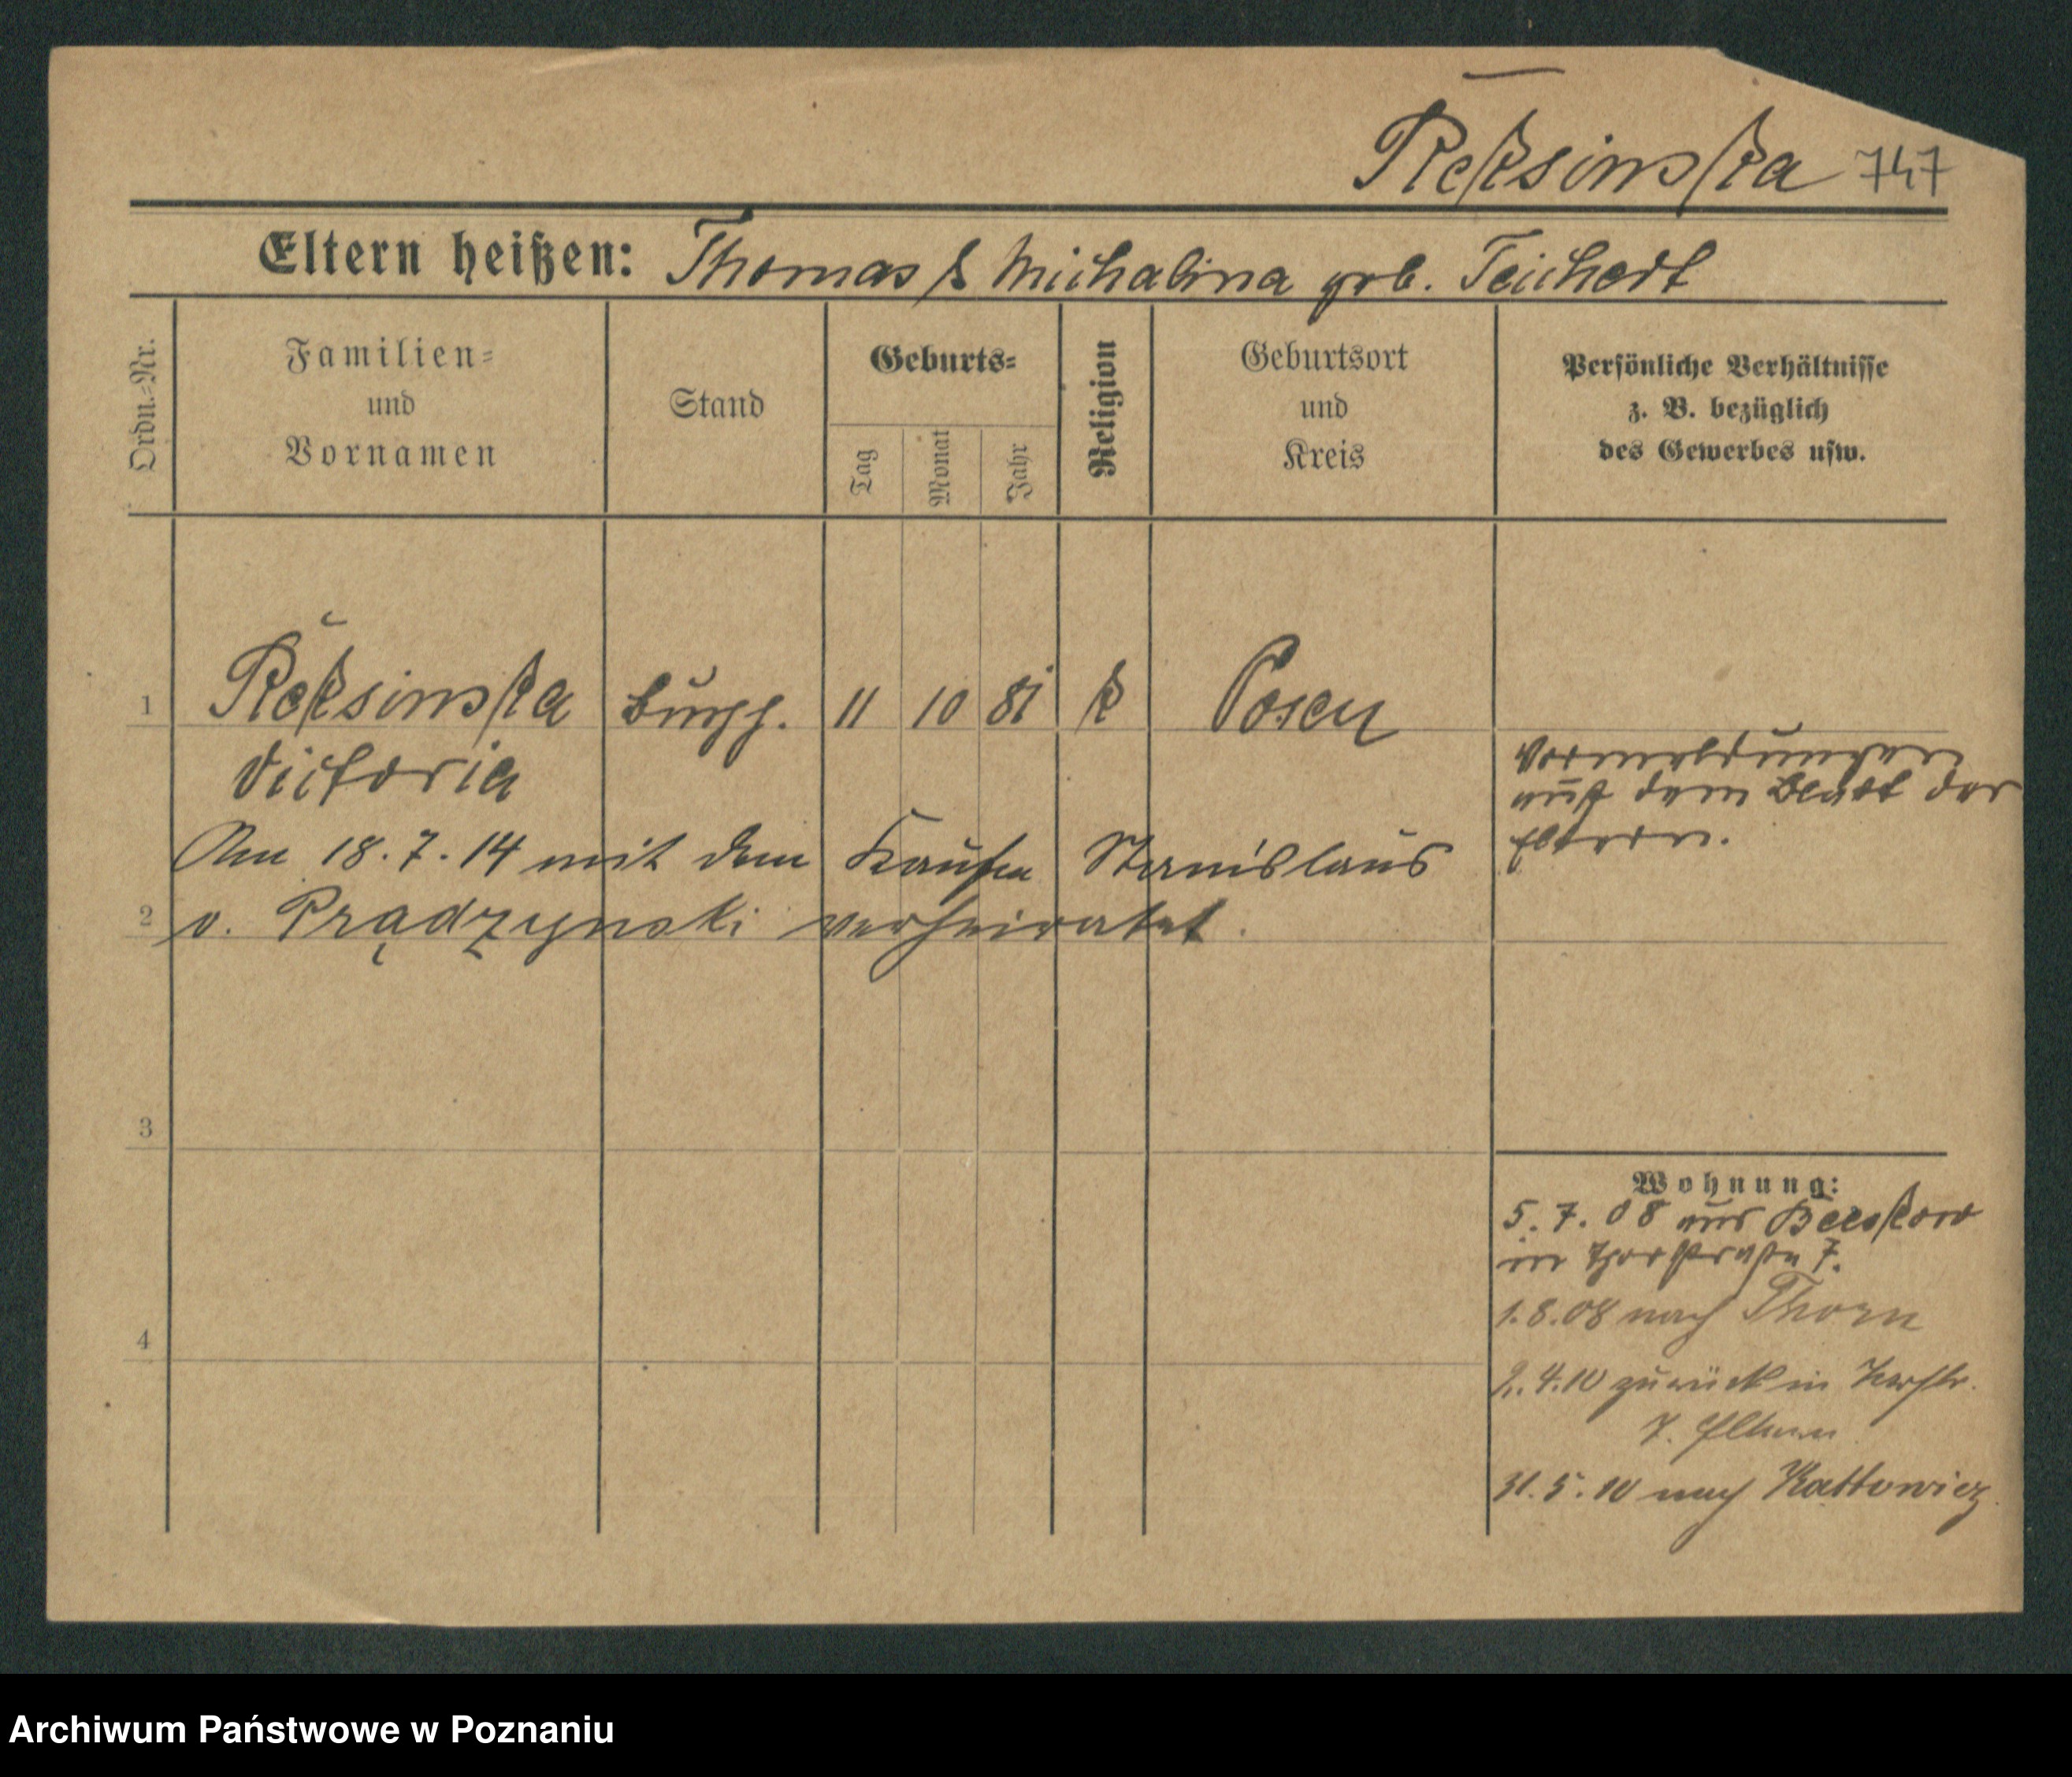 Reksinska 747
Eltern heißen: Thomas & Michalina geb. Teichert
Ordn.-Nr.
Familien-
und
Vornamen
Stand
Geburts-
Tag
Monat
Jahr
Religion
Geburtsort
und
Kreis
Persönliche Verhältnisse
z. B. bezüglich
des Gewerbes usw.
1 Reksinska 11 10 81 k Posen
Victoria
Vormeldungen
auf dem Blatt der
Eltern.
Am 18.7.14 mit dem Kaufm Stanislaus
2 v. Prądzynski verheiratet.
3
Wohnung:
5.7.08 aus Beeskow
in 7.
1.8.08 nach Thorn
4
2.4.10 zurück in
7. Eltern
31.5.10 nach Kattowicz
Archiwum Państwowe w Poznaniu